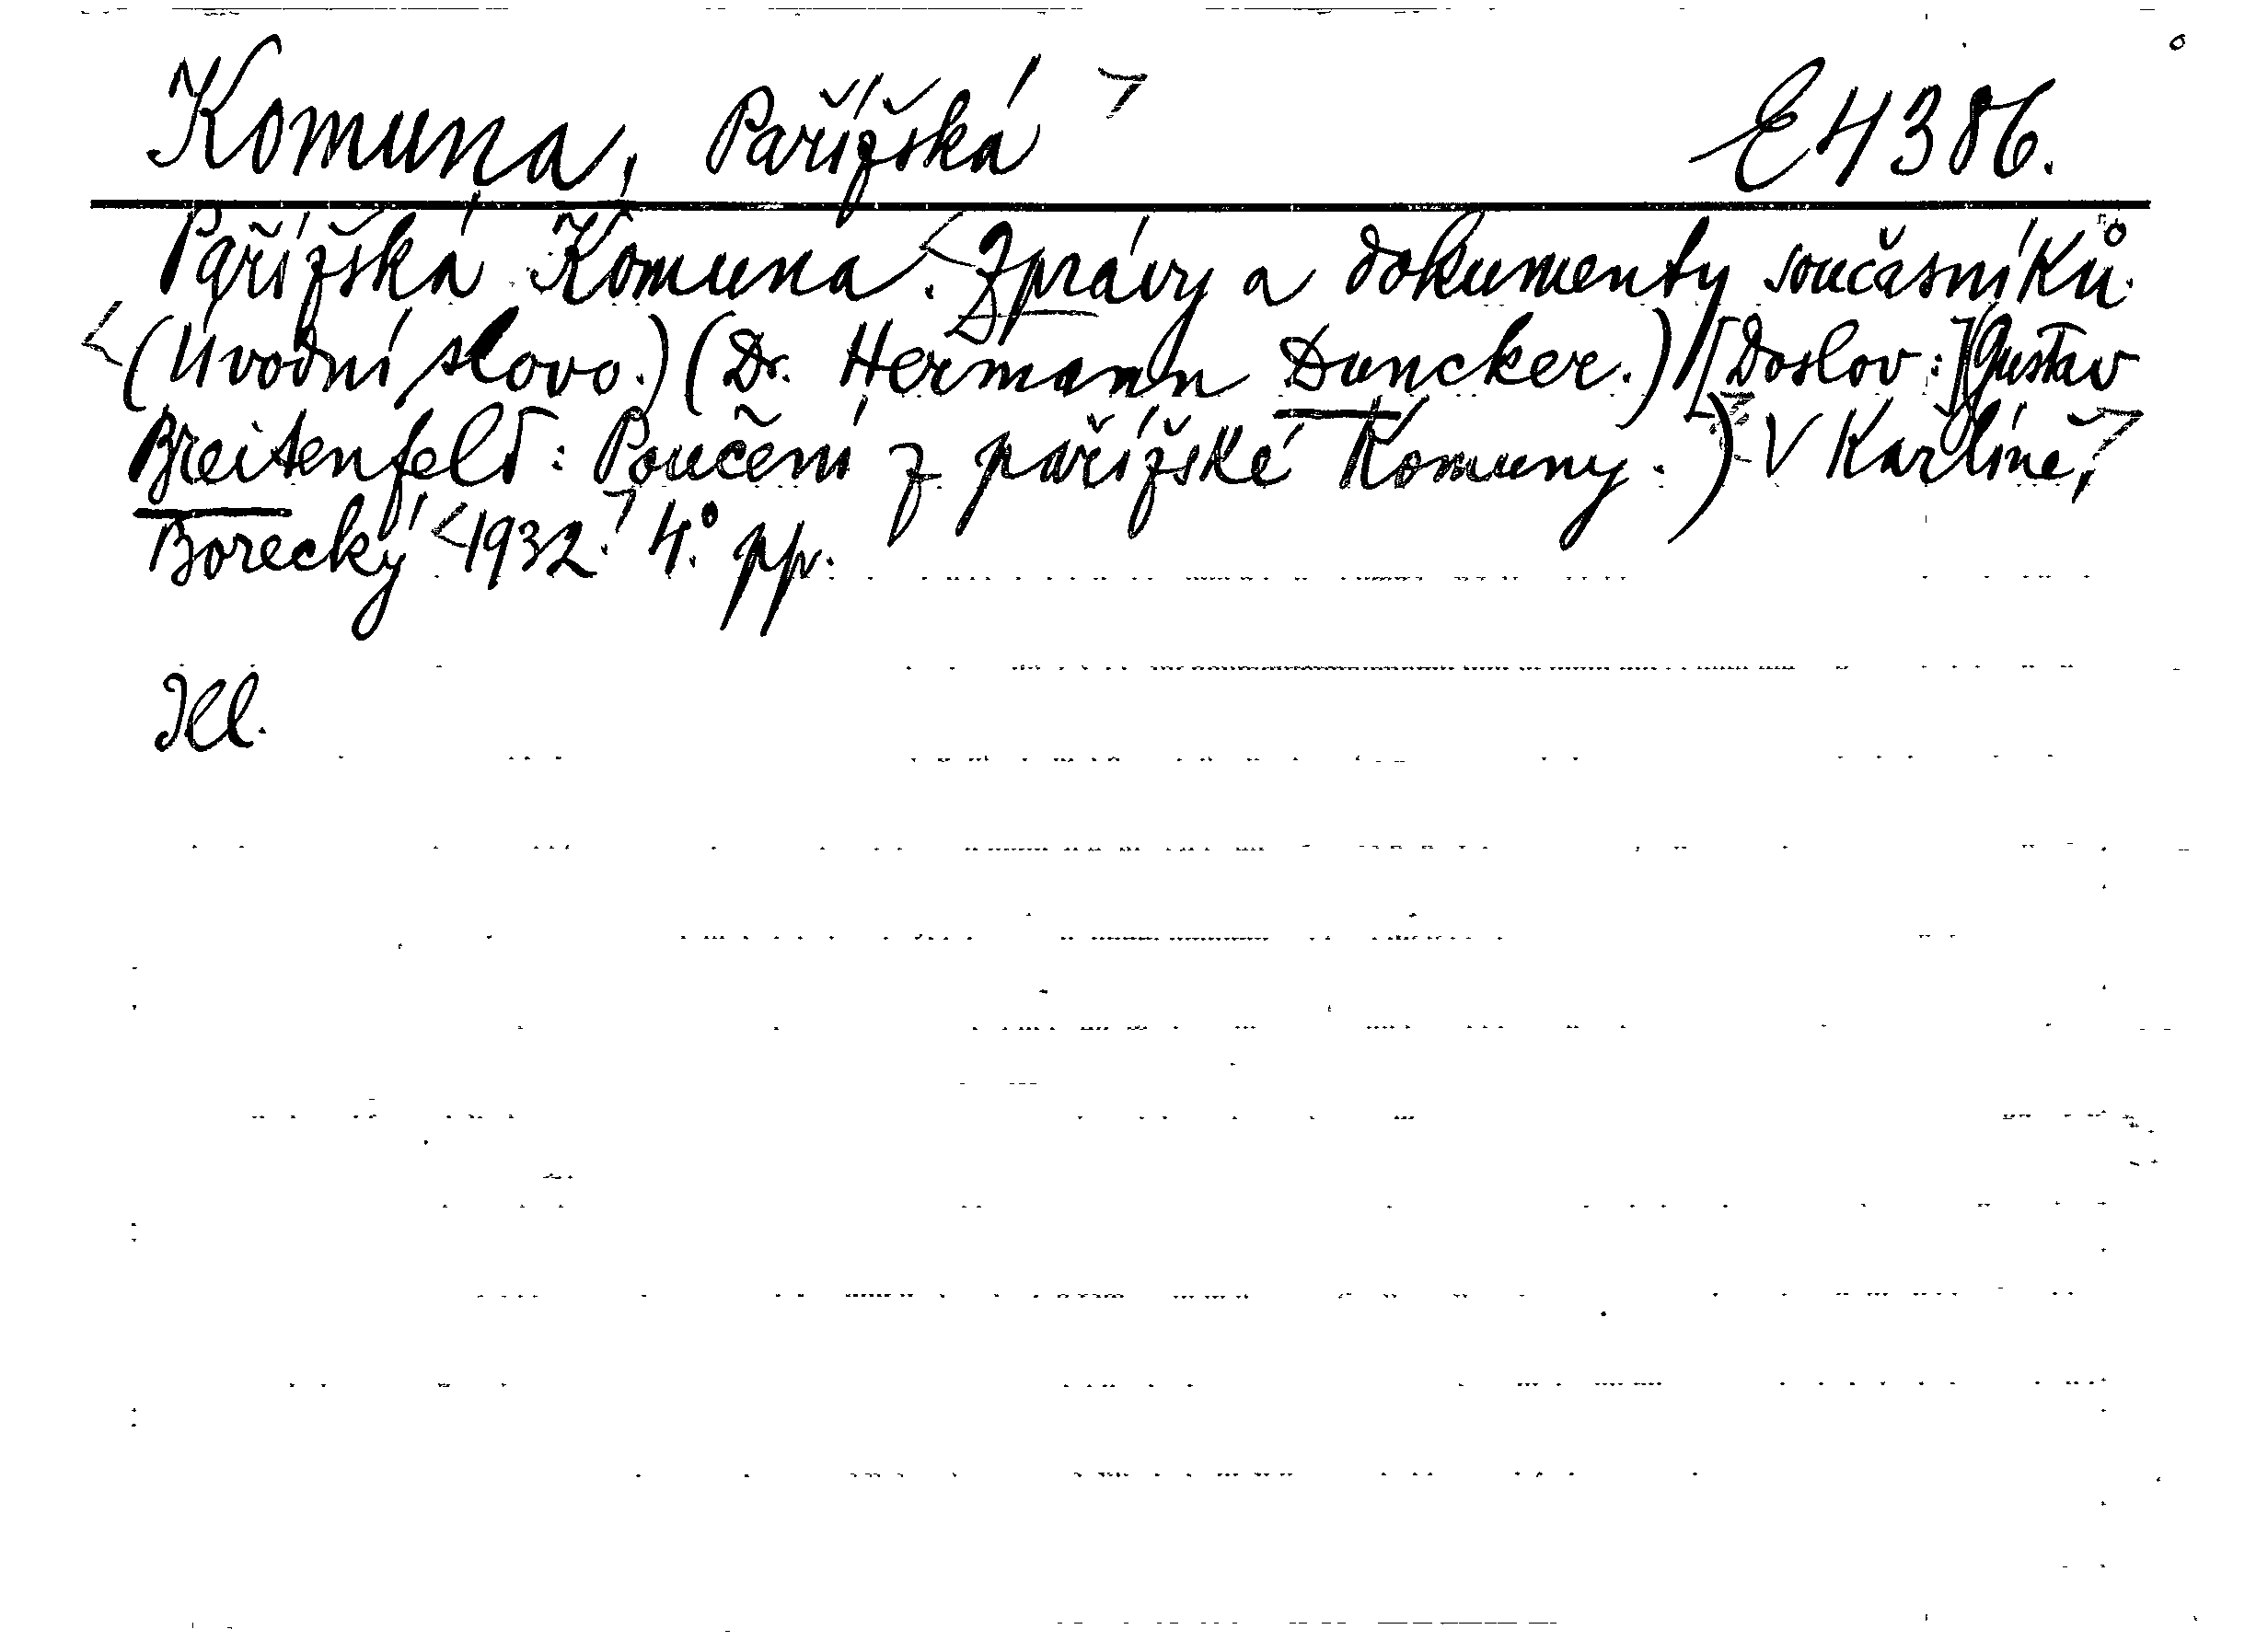 Komuna, Pařížská E 4386.
Pařížská Komuna. Zprávy a dokumenty současníků.
(Úvodní slovo.) (Dr. Hermann Duncker.) [Doslov:] (Gustav
Breitenfeld: Poučení z pařížské Komuny.) V Karlíně,
Borecký 1932. 4.° pp.
Ill.